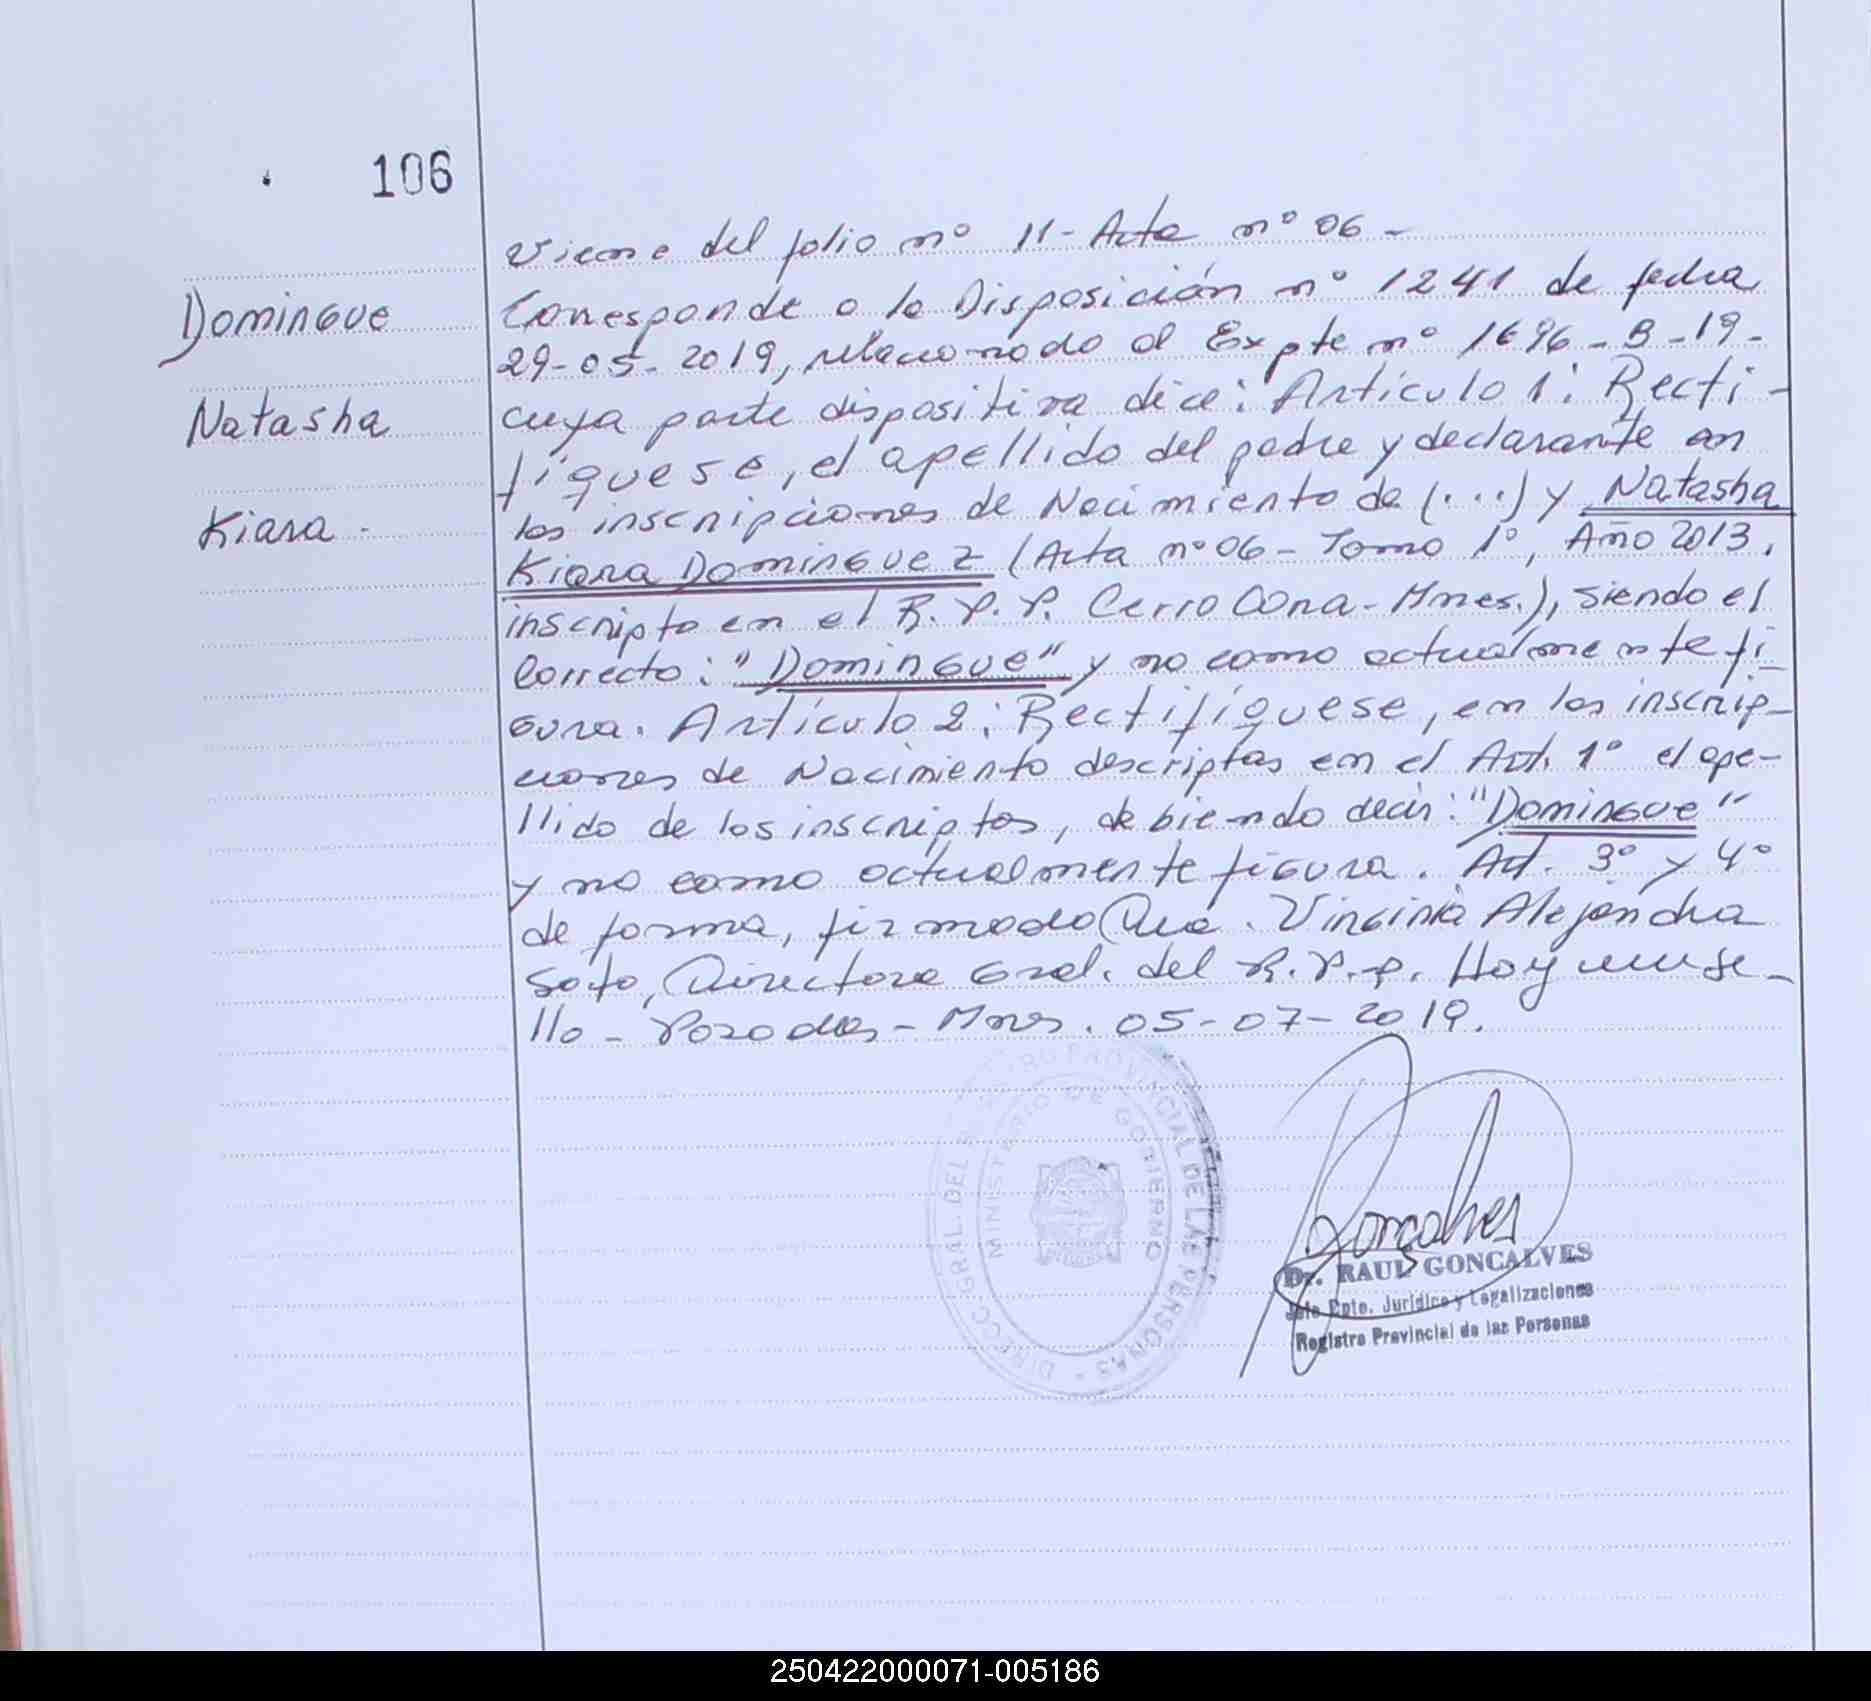 106
Domingue
Natasha
Kiara.-
Viene del folio nº 11- Acta nº 06 -
Corresponde a la Disposición nº 1241 de fecha
29-05-2019, relacionado al Expte nº 1696-B-19-
cuya parte dispositiva dice: Artículo 1: Recti-
fíquese, el apellido del padre y declarante en
las inscripciones de Nacimiento de (...) y Natasha
Kiara Dominguez (Acta nº 06 - Tomo 1º, Año 2013,
inscripta en el R.P.P. Cerro Cora - Mnes.), siendo el
Correcto: "Domingue" y no como actualmente fi-
gura. Artículo 2: Rectifíquese, en las inscrip-
ciones de Nacimiento descriptas en el Art. 1º el ape-
llido de los inscriptos, debiendo decir: "Domingue"
y no como actualmente figura. Art. 3º y 4º
de forma, firmado Dra. Virginia Alejandra
Soto, Directora Gral. del R.P.P. Hoy mi se-
llo - Posadas - Mnes. 05-07-2019.
DIRECC. GRAL. DEL REGISTRO PROVINCIAL DE LAS PERSONAS
MINISTERIO DE GOBIERNO
Gonçalves
Dr. RAUL GONÇALVES
Jefe Dpto. Jurídico y Legalizaciones
Registro Provincial de las Personas
250422000071-005186